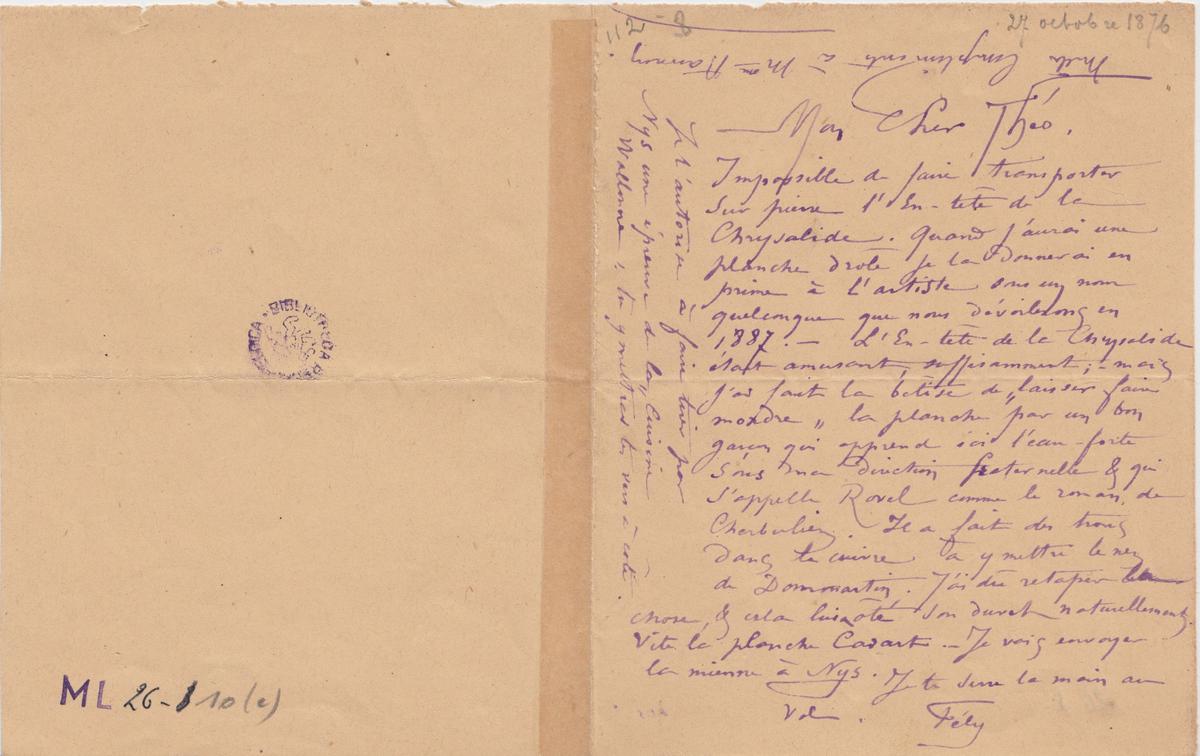 27 octobre 1876
11 2 - 3
Mille Compliments à Mme Hannon
Mon Cher Théo,
Impossible de faire transporter
sur pierre l'En-tête de la
Chrysalide. Quand j'aurai une
planche drôle je la donnerai en
prime à L'artiste sous un nom
quelconque que nous dévoilerons en
1887. — L'En-tête de la Chrysalide
était amusant, suffisamment ; - mais
j'ai fait la bêtise de „laisser faire
mordre „ la planche par un bon
garçon qui apprend ici l'eau-forte
sous ma direction fraternelle & qui
s'appelle Rovel comme le roman de
Cherbuliez. Il a fait des trous
dans le cuivre à y mettre le nez
de Dommartin. J'ai dû retaper la
chose, & cela lui a ôté son duvet naturellement.
Vite la planche Cadart. — Je vais envoyer
la mienne à Nys. Je te serre la main au
vol. Fély
Je t'autorise à faire tirer par
Nys une épreuve de la „Cuisine
Wallonne ; tu y mettras tes vers à côté.
BIBLIOTHECA REGIA BELGICA
ML 26-8 10 (e)